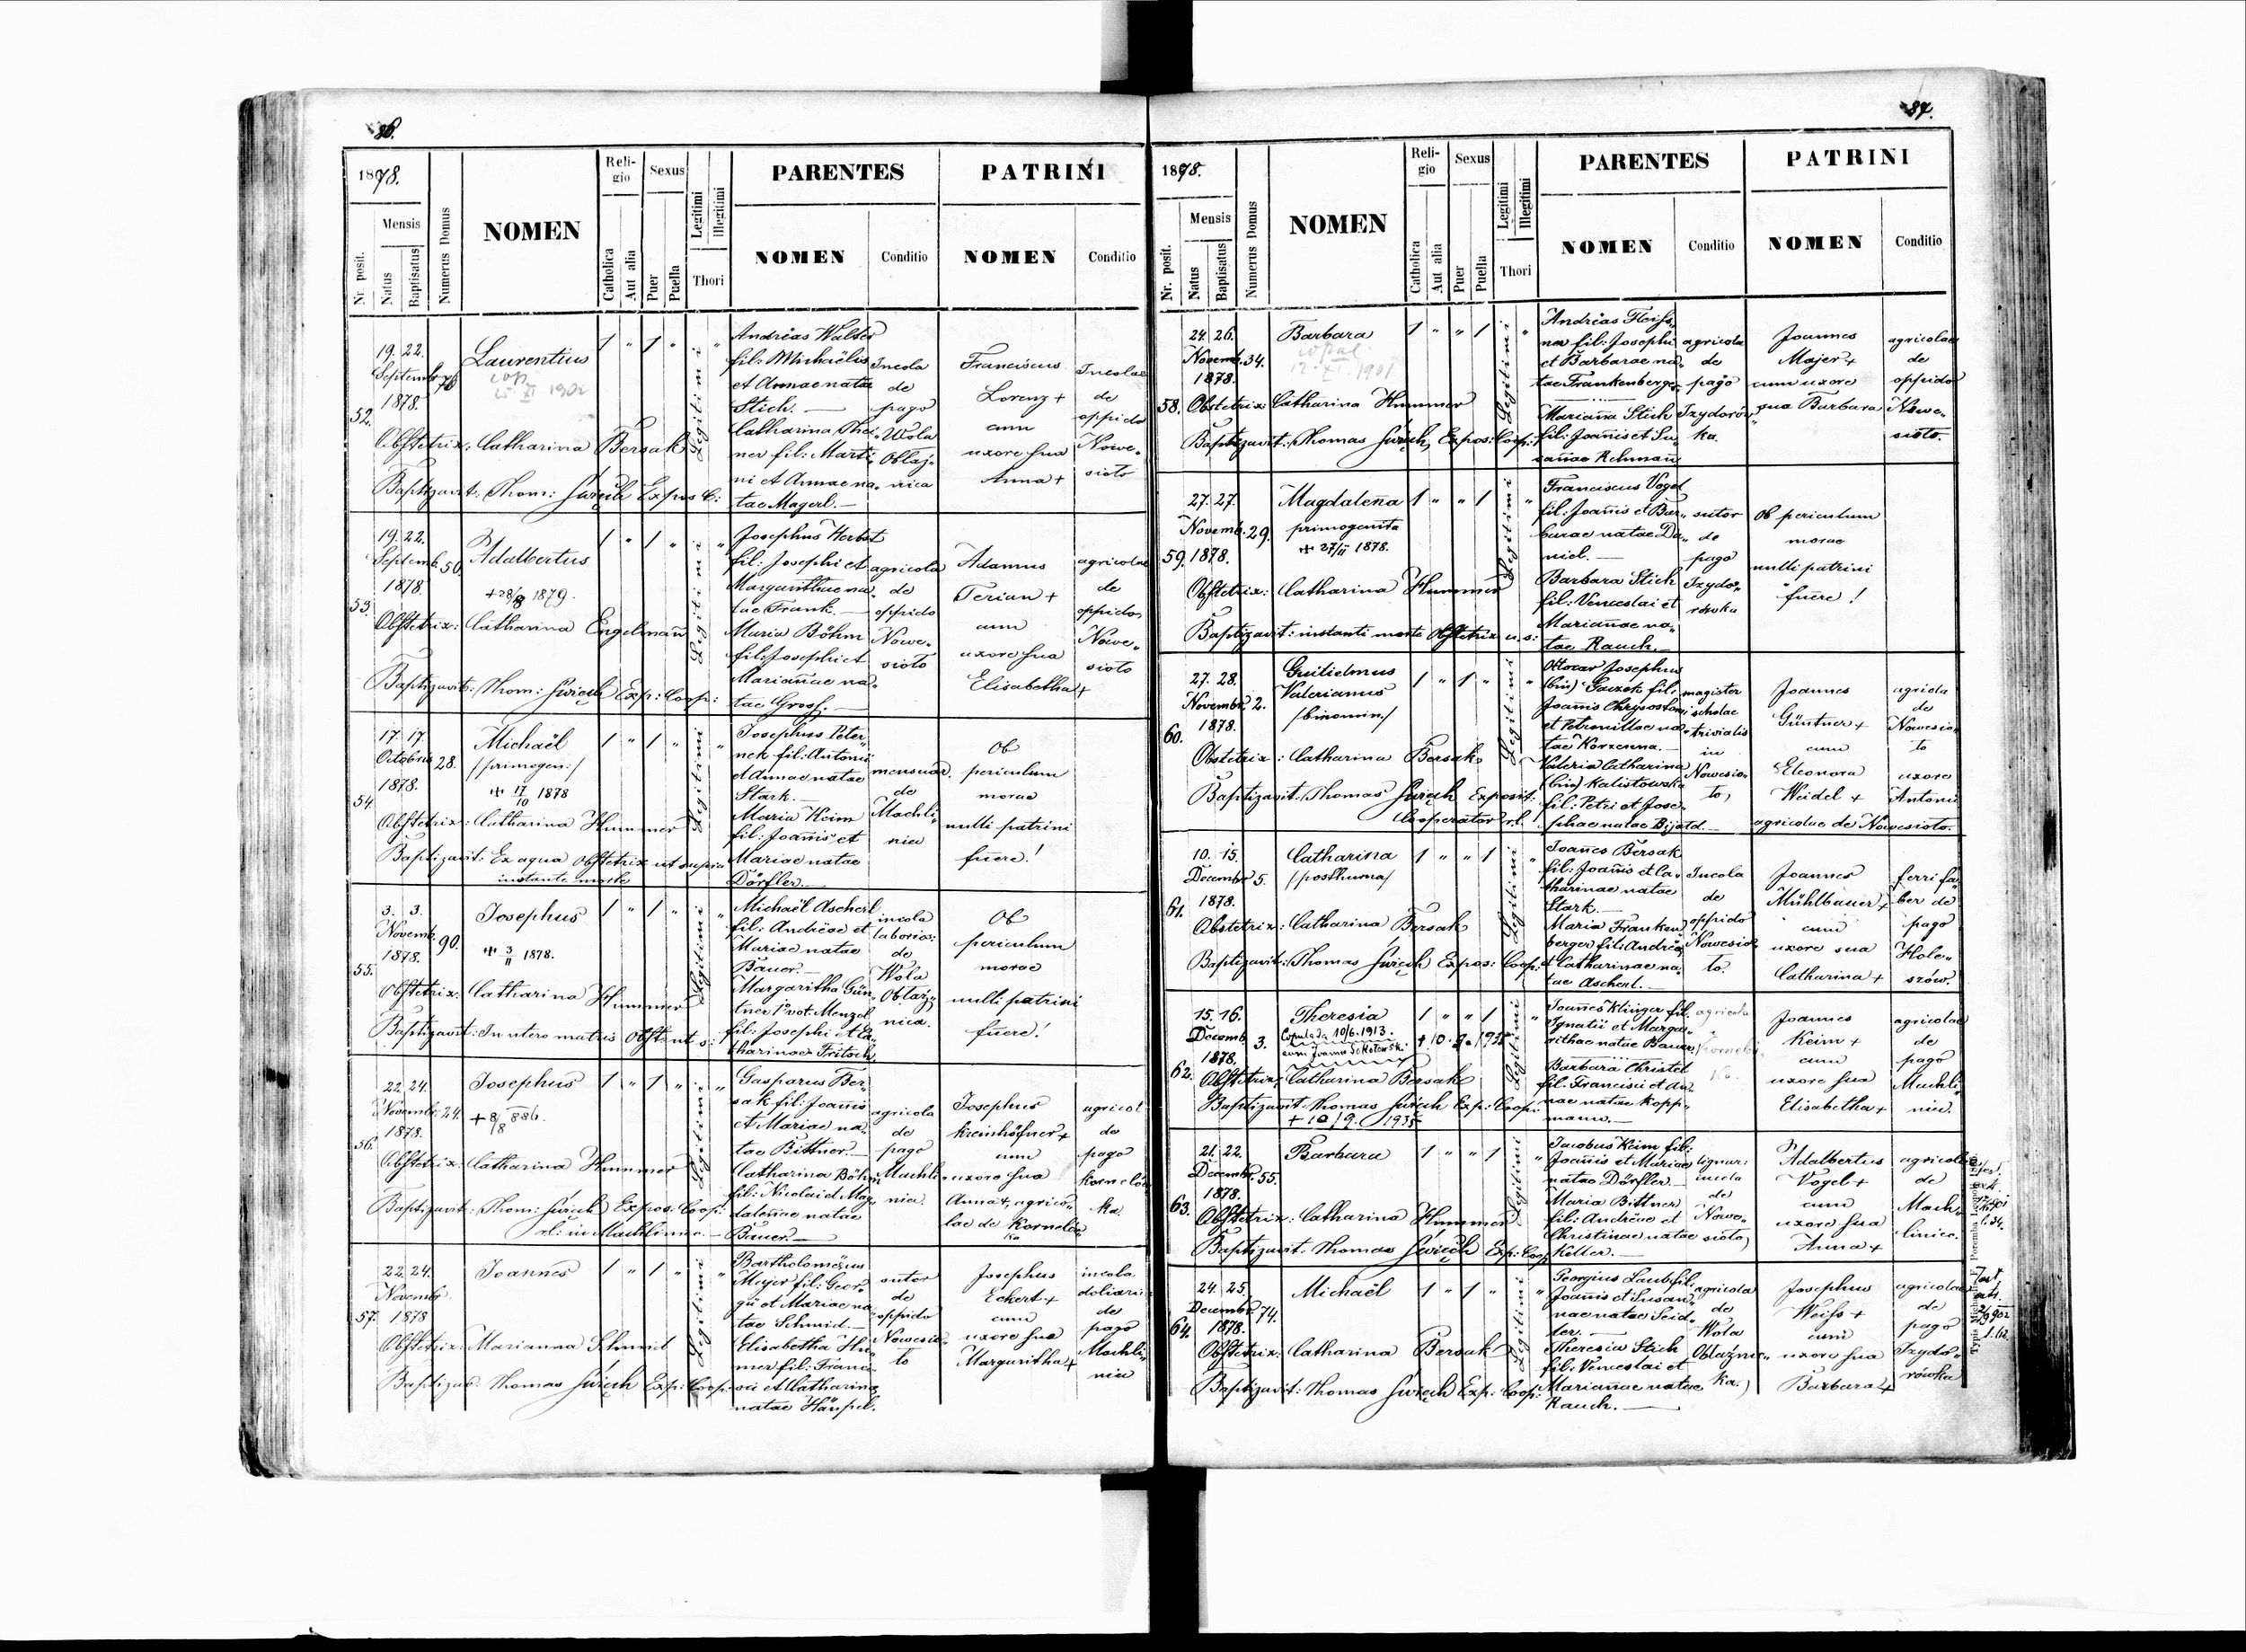 86.
1878.
Reli-
gio
Sexus
Legitimi
Illegitimi
PARENTES
PATRINI
Nr. posit.
Mensis
Natus
Baptisatus
Numerus Domus
NOMEN
Catholica
Aut alia
Puer
Puella
Thori
NOMEN
Conditio
NOMEN
Conditio
52.
19. 22.
Septemb.
1878.
Laurentius
1 " 1 "
Legitimi
Andreas Walter
fil: Michaëlis
et Annae nata
Stich. —
Catharina Thei-
ner fil: Marti-
ni et Annae na-
tae Magerl. —
Incola
de
pago
Wola
Obłaź-
nica
Franciscus
Lorenz +
cum
uxore sua
Anna +
Incolae
de
oppido
Nowe-
sioło
Obstetrix: Catharina Bersak
Baptizavit: Thom: Świech Expos C:
53.
19. 22.
Septemb. 50.
1878.
Adalbertus
+ 28/8 1879.
1 " 1 "
Legitimi
Josephus Herbst
fil: Josephi et
Margarithae na-
tae Frank. —
Maria Böhm
fil: Josephi et
Mariañae na-
tae Gross. —
agricola
de
oppido
Nowe-
sioło
Adamus
Terian +
cum
uxore sua
Elisabetha +
agricolae
de
oppido
Nowe-
sioło
Obstetrix: Catharina Engelmañ
Baptizavit: Thom: Świech Exp: Coop:
54
17. 17.
Octobris 28.
1878.
Michaël
/primogen:/
+ 17/10 1878
1 " 1 "
Legitimi
Josephus Peter-
nek fil: Antonii
et Annae natae
Stark. —
Maria Keim
fil: Joañis et
Mariae natae
Dörfler. —
mensuar.
de
Machli-
niec
Ob
periculum
morae
nulli patrini
fuere!
Obstetrix: Catharina Hummer
Baptizavit: Ex aqua obstetrix ut supra
instante morte
55.
3. 3.
Novemb. 90.
1878.
Josephus
+ 3/11 1878.
1 " 1 "
Legitimi
Michaël Ascherl
fil: Andreae et
Mariae natae
Bauer. —
Margaritha Gün-
tner 1° vot. Menzel
fil: Josephi et Ca-
tharinae Fritsch.
incola
laborios:
de
Wola
Obłaź-
nica.
Ob
periculum
morae
nulli patrini
fuere!
Obstetrix: Catharina Hummer
Baptizavit: In utero matris Obst: ut s:
56.
22. 24.
Novembr. 24.
1878.
Josephus
+ 8/8 886.
1 " 1 "
Legitimi
Gasparus Ber-
sak fil: Joañis
et Mariae na-
tae Bittner. —
Catharina Böhm
fil: Nicolai et Mag-
dalenae natae
Bauer. —
agricola
de
pago
Machli-
niec.
Josephus
Kreinhöfner +
cum
uxore sua
Anna +, agrico-
lae de Kornelów
ka
agricol
de
pago
Kornelów
ka.
Obstetrix: Catharina Hummer
Baptizavit: Thom: Świech Expos: Coop:
rl: in Machliniec. —
57.
22. 24.
Novembr.
1878
Joannes
1 " 1 "
Legitimi
Bartholomeus
Mayer fil: Geor-
gii et Mariae na-
tae Schmid. —
Elisabetha Hu-
mer fil: Franci-
sci et Catharinae
natae Hämpel.
sutor
de
oppido
Nowesio-
ło
Josephus
Eckert +
cum
uxore sua
Margaritha +
incola
doliari
de
pago
Machli-
niec
Obstetrix: Marianna Schmid
Baptizav: Thomas Świech Exp: Coop:
87.
1878.
Reli-
gio
Sexus
Legitimi
Illegitimi
PARENTES
PATRINI
Nr. posit.
Mensis
Natus
Baptisatus
Numerus Domus
NOMEN
Catholica
Aut alia
Puer
Puella
Thori
NOMEN
Conditio
NOMEN
Conditio
58.
24. 26.
Novemb. 34.
1878.
Barbara
1901
1 " " 1
Legitimi
Andreas Fleiss-
na fil: Josephi
et Barbarae na-
tae Frankenberger
Mariaña Stich
fil: Joañis et Su-
sañae Rehmañ
agricola
de
pago
Izydorów-
ka.
Joannes
Majer +
cum uxore
sua Barbara
agricolae
de
oppido
Nowe-
sioło.
Obstetrix Catharina Hummer
Baptizavit: Thomas Świech, Expos: Coop:
59.
27. 27.
Novemb. 29.
1878.
Magdalena
primogenita
+ 27/11 1878.
1 " " 1
Legitimi
Franciscus Vogel
fil: Joañis et Bar-
barae natae Da-
niel. —
Barbara Stich
fil: Venceslai et
Mariañae na-
tae Rauch. —
sutor
de
pago
Izydo-
rówka
Ob periculum
morae
nulli patrini
fuere!
Obstetrix: Catharina Hummer
Baptizavit: instanti morte Obstetrix u. s:
60.
27. 28.
Novembr. 2.
1878.
Guilielmus
Valerianus
/binomin./
1 " 1 "
Legitimi
Ottocar Josephus
(bin) Gaczek fil:
Joannis Chrysostomi
et Petronillae na-
tae Korzenna. —
Valeria Catharina
(bin) Kalistowska
fil: Petri et Jose-
phae natae Bijatd. —
magister
scholae
trivialis
in
Nowesio-
ło,
Joannes
Güntner +
cum
Eleonora
Weidel +
agricolae de Nowesioło.
agricola
de
Nowesio-
ło
uxore
Antonii
Obstetrix: Catharina Bersak
Baptizavit: Thomas Świech Exposit:
Cooperator rl.
61.
10. 15.
Decembr. 5.
1878.
Catharina
/posthuma/
1 " " 1
Legitimi
Joañes Bersak
fil: Joañis et Ca-
tharinae natae
Stark. —
Maria Franken-
berger fil: Andreae
et Catharinae na-
tae Ascherl. —
Incola
de
oppido
Nowesio-
ło.
Joannes
Mühlbauer +
cum
uxore sua
Catharina +
ferri fa-
ber de
pago
Hole-
szów.
Obstetrix: Catharina Bersak
Baptizavit: Thomas Świech Expos: Coop:
62.
15. 16.
Decemb. 3.
1878.
Theresia
Copulata 10/6. 1913.
cum Joanne Sokołowski
1 " " 1
+ 10. 9. 1935
Legitimi
Joañes Klinger fil:
Ignatii et Marga-
rithae natae Bauer.
Barbara Christel
fil: Francisci et An-
nae natae Kopp-
mann. —
agricola
Joannes
Keim +
cum
uxore sua
Elisabetha +
agricolae
de
pago
Machli-
niec.
Obstetrix: Catharina Bersak
Baptizavit Thomas Świech Exp: Coop:
+ 10/9. 1935
63.
21. 22.
Decembr. 55.
1878.
Barbara
1 " " 1
Legitimi
Jacobus Keim fil:
Joañis et Mariae
natae Dörfler. —
Maria Bittner
fil: Andreae et
Christinae natae
Keller. —
lignar:
incola
de
Nowe-
sioło,
Adalbertus
Vogel +
cum
uxore sua
Anna +
agricolae
de
Mach-
liniec.
Obstetrix: Catharina Hummer
Baptizavit: Thomas Świech Exp: Coop
64.
24. 25.
Decembr. 74.
1878.
Michaël
1 " 1 "
Legitimi
Georgius Laub fil:
Joañis et Susan-
nae natae Seid-
ler. —
Theresia Stich
fil: Venceslai et
Mariañae natae
Rauch. —
agricola
de
Wola
Obłaźnic-
ka.
Josephus
Weiss +
cum
uxore sua
Barbara +
agricolae
de
pago
Izydo-
rówka
Obstetrix: Catharina Bersak
Baptizavit: Thomas Świech Exp: Coop: